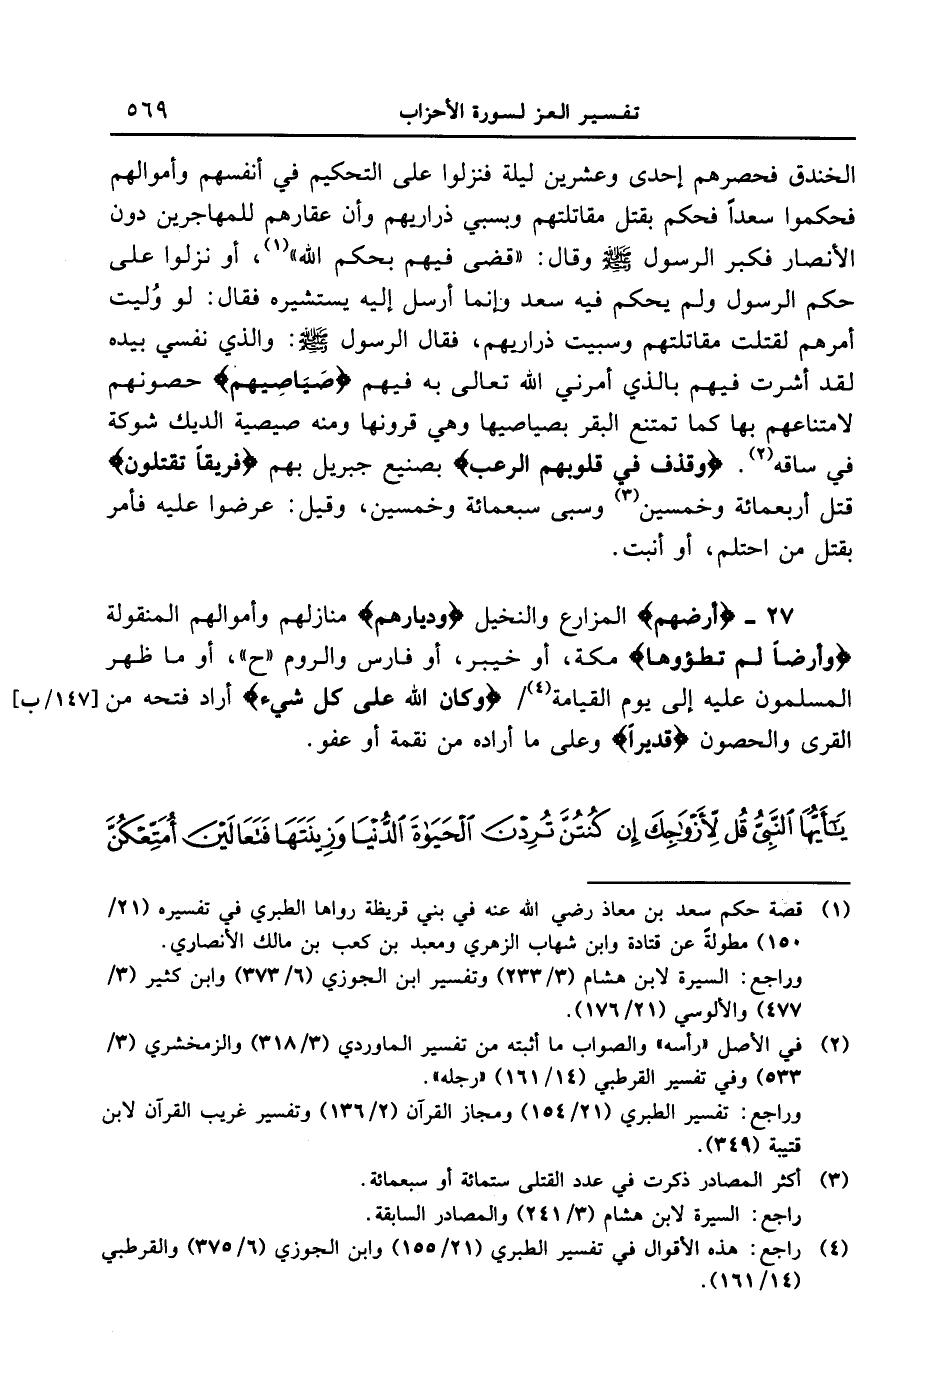 تفسير العز لسورة الأحزاب ٥٦٩
الخندق فحصرهم إحدى وعشرين ليلة فنزلوا على التحكيم في أنفسهم وأموالهم
فحكموا سعداً فحكم بقتل مقاتلتهم وبسبي ذراريهم وأن عقارهم للمهاجرين دون
الأنصار فكبر الرسول ﷺ وقال: «قضى فيهم بحكم الله»(١)، أو نزلوا على
حكم الرسول ولم يحكم فيه سعد وإنما أرسل إليه يستشيره فقال: لو وُليت
أمرهم لقتلت مقاتلتهم وسبيت ذراريهم، فقال الرسول ﷺ: والذي نفسي بيده
لقد أشرت فيهم بالذي أمرني الله تعالى به فيهم ﴿صَيَاصِيهم﴾ حصونهم
لامتناعهم بها كما تمتنع البقر بصياصيها وهي قرونها ومنه صيصية الديك شوكة
في ساقه(٢). ﴿وقذف في قلوبهم الرعب﴾ بصنيع جبريل بهم ﴿فريقاً تقتلون﴾
قتل أربعمائة وخمسين(٣) وسبى سبعمائة وخمسين، وقيل: عرضوا عليه فأمر
بقتل من احتلم، أو أنبت.
٢٧ - ﴿أرضهم﴾ المزارع والنخيل ﴿وديارهم﴾ منازلهم وأموالهم المنقولة
﴿وأرضاً لم تطؤوها﴾ مكة، أو خيبر، أو فارس والروم «ح»، أو ما ظهر
المسلمون عليه إلى يوم القيامة(٤)/ ﴿وكان الله على كل شيء﴾ أراد فتحه من [١٤٧/ب]
القرى والحصون ﴿قديراً﴾ وعلى ما أراده من نقمة أو عفو.
يَٰٓأَيُّهَا ٱلنَّبِىُّ قُل لِّأَزْوَٰجِكَ إِن كُنتُنَّ تُرِدْنَ ٱلْحَيَوٰةَ ٱلدُّنْيَا وَزِينَتَهَا فَتَعَالَيْنَ أُمَتِّعْكُنَّ
(١) قصة حكم سعد بن معاذ رضي الله عنه في بني قريظة رواها الطبري في تفسيره (٢١/
١٥٠) مطولةً عن قتادة وابن شهاب الزهري ومعبد بن كعب بن مالك الأنصاري.
وراجع: السيرة لابن هشام (٣/٢٣٣) وتفسير ابن الجوزي (٦/٣٧٣) وابن كثير (٣/
٤٧٧) والألوسي (٢١/١٧٦).
(٢) في الأصل «رأسه» والصواب ما أثبته من تفسير الماوردي (٣/٣١٨) والزمخشري (٣/
٥٣٣) وفي تفسير القرطبي (١٤/١٦١) «رجله».
وراجع: تفسير الطبري (٢١/١٥٤) ومجاز القرآن (٢/١٣٦) وتفسير غريب القرآن لابن
قتيبة (٣٤٩).
(٣) أكثر المصادر ذكرت في عدد القتلى ستمائة أو سبعمائة.
راجع: السيرة لابن هشام (٣/٢٤١) والمصادر السابقة.
(٤) راجع: هذه الأقوال في تفسير الطبري (٢١/١٥٥) وابن الجوزي (٦/٣٧٥) والقرطبي
(١٤/١٦١).